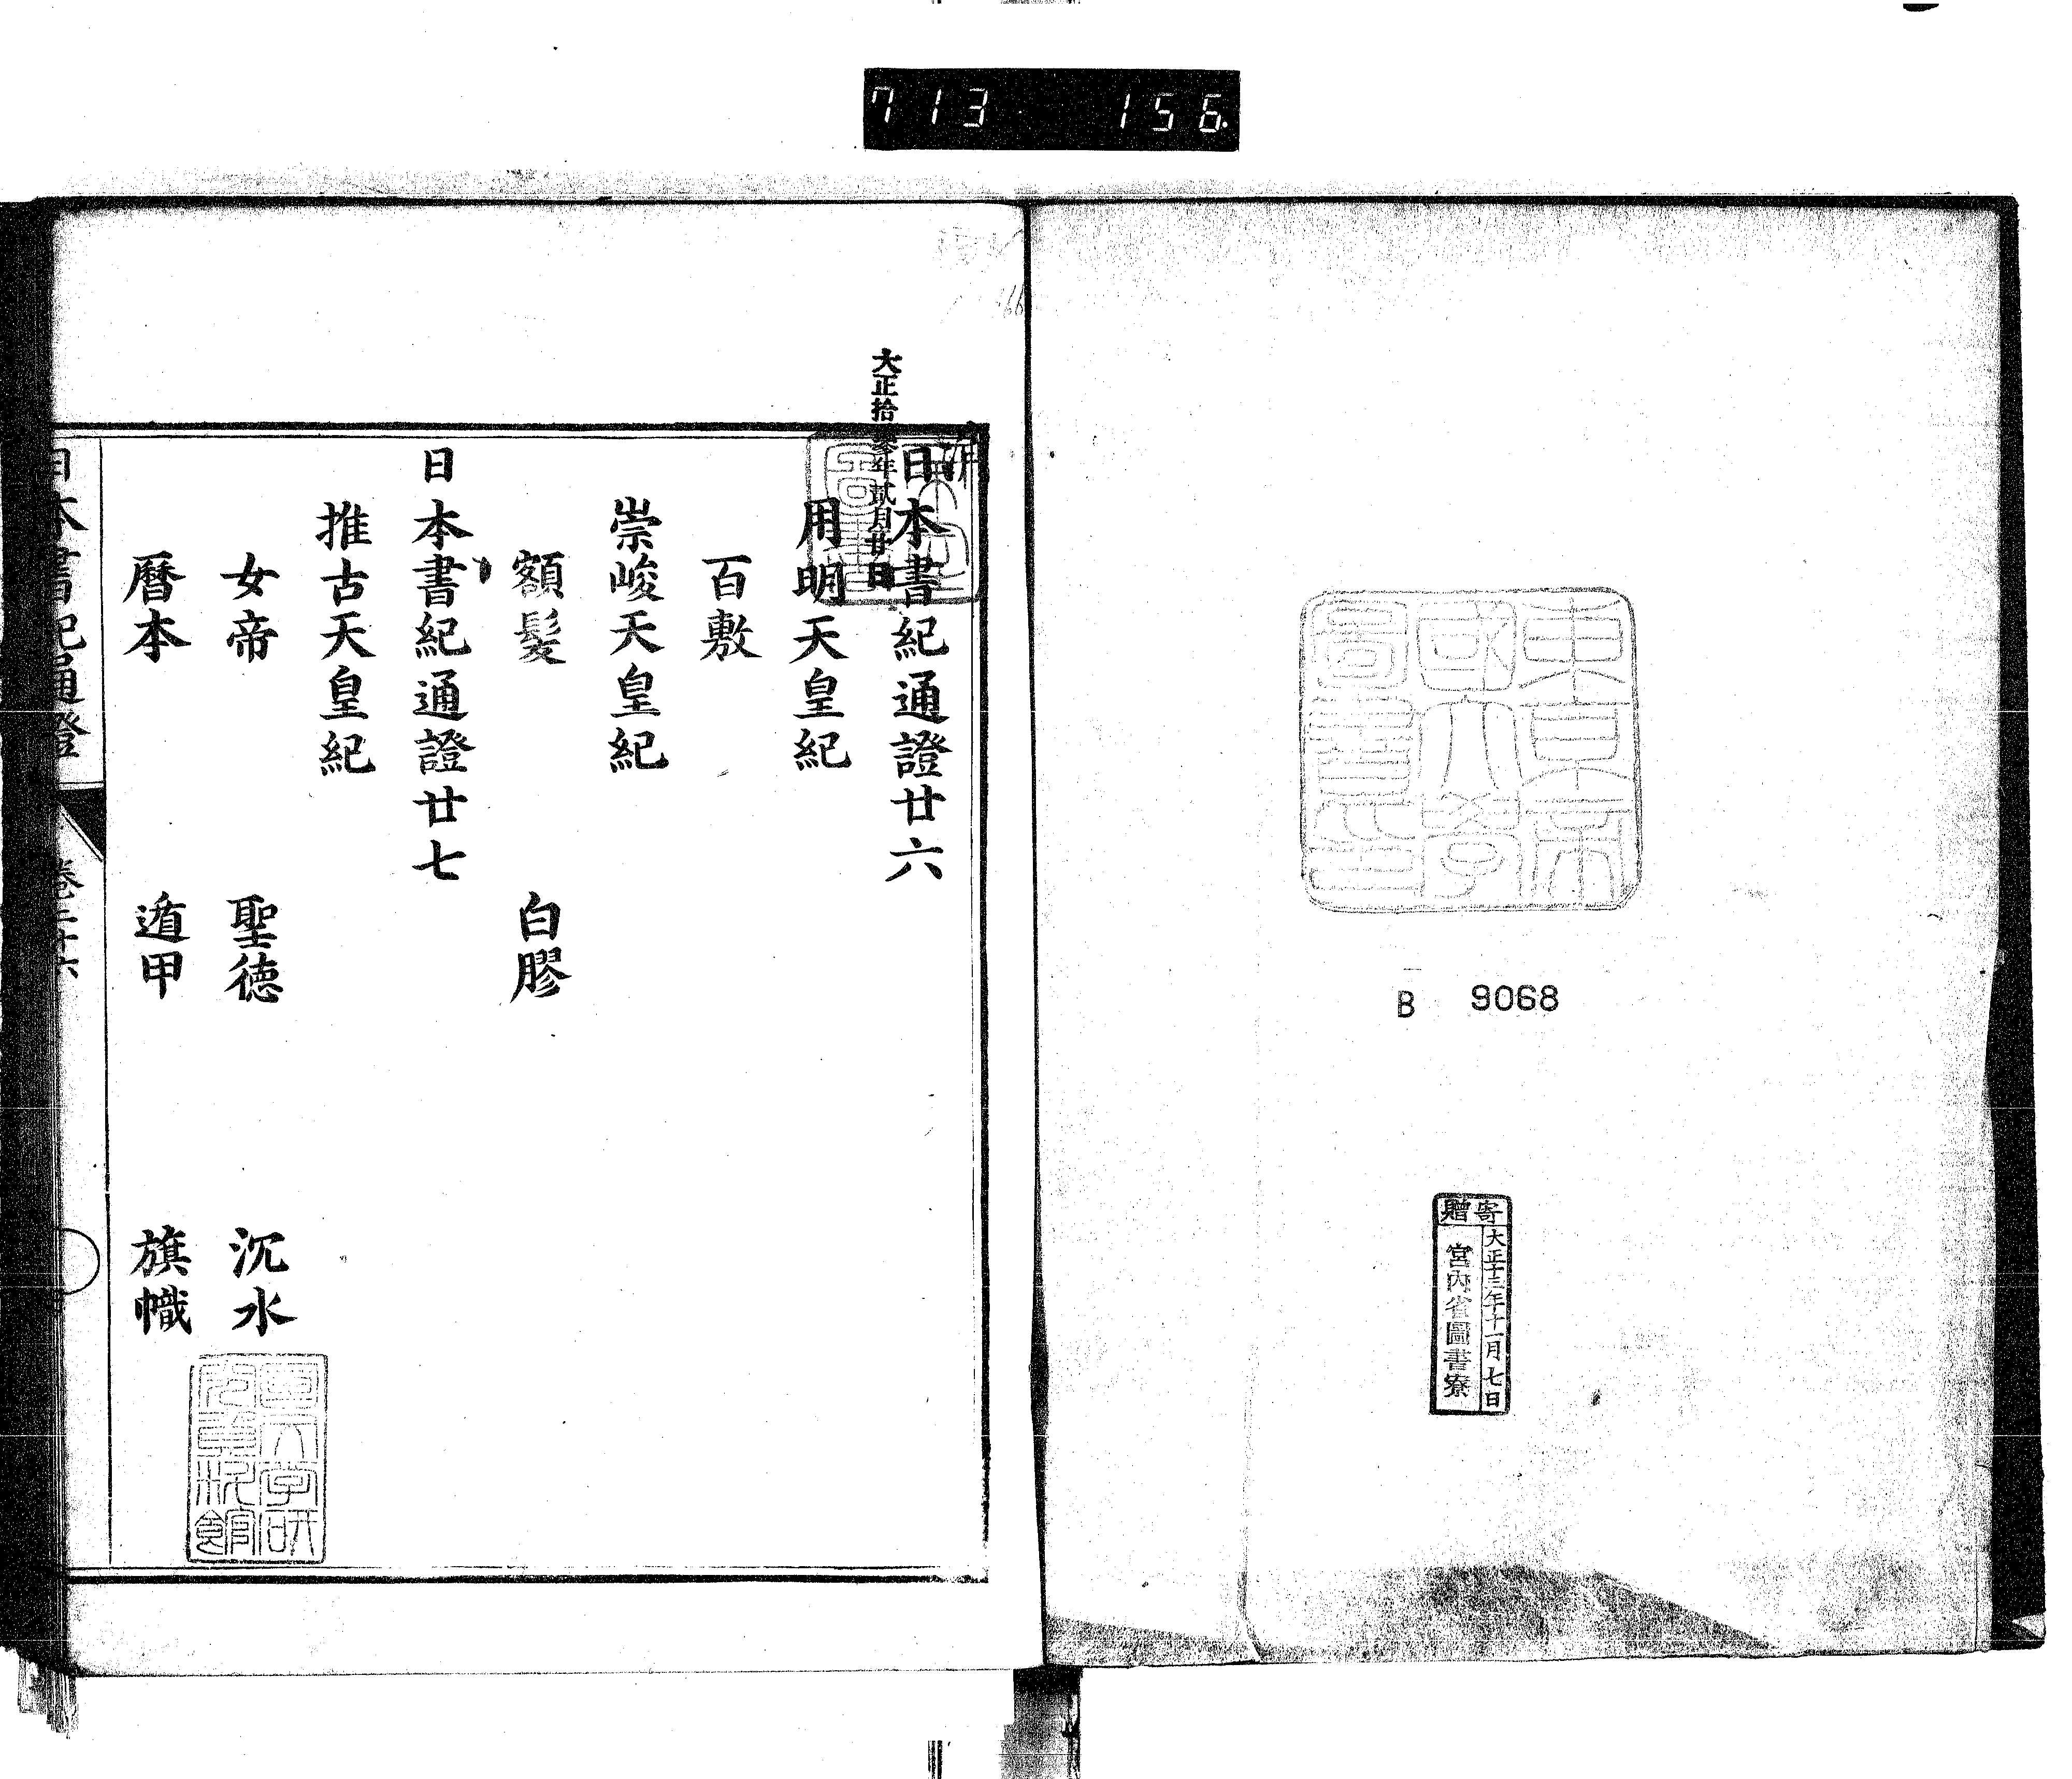 713 156
東京帝
國大學
圖書印
B 9068
寄贈
大正十三年十一月七日
宮内省圖書寮
大正拾參年貳月廿日
日本書紀通證廿六
用明天皇紀
百敷
崇峻天皇紀
額髪 白膠
日本書紀通證廿七
推古天皇紀
女帝 聖德 沉水
曆本 遁甲 旗幟
日本書紀通證 卷二十六
國文学研
究資料館